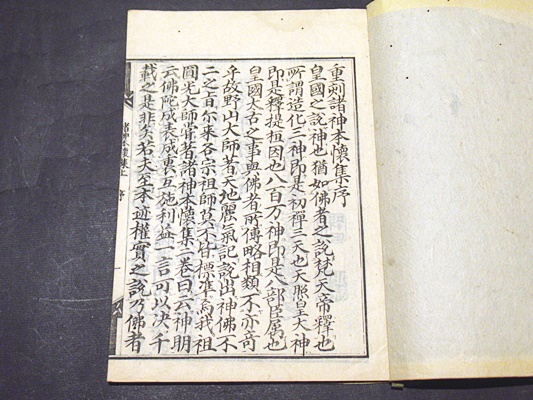 重刻諸神本懷集序
皇國之說神也猶如佛者之說梵天帝釋也
所謂造化三神即是初禪三天也天照皇大神
即是釋提桓因也八百万神即是八部臣屬也
皇國太古之事與佛者所傳略相類不亦奇
乎故野山大師著天地麗氣記說出神佛不
二之旨尓来各宗祖師莫不皆標準焉我祖
圓光大師嘗著諸神本懷集二卷曰云神明
云佛陀成表成裏互施利益一言可以决千
載之是非矣若夫至本迹權實之說乃佛者
諸神本懷集上 序